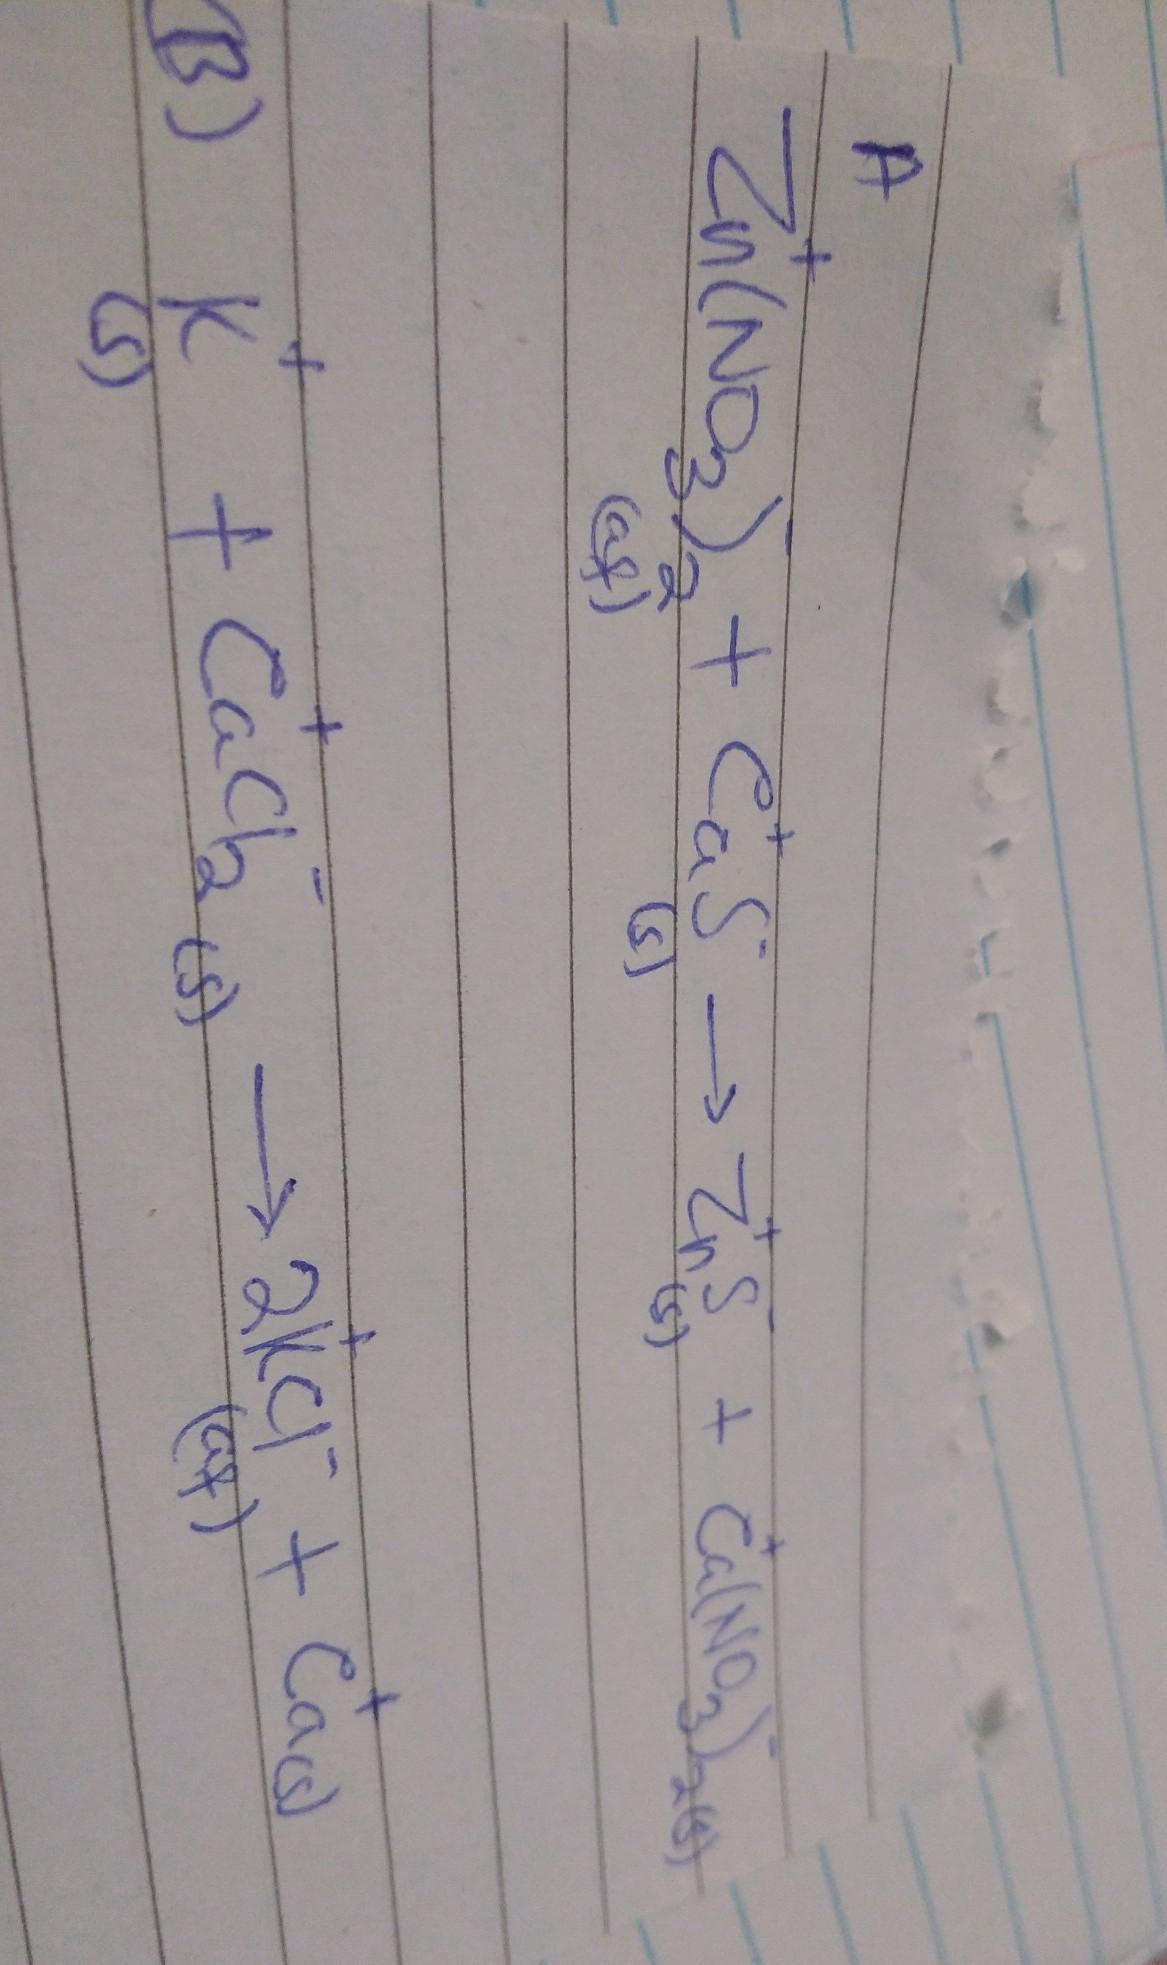 A
Zn⁺(NO₃)⁻₂(aq) + Ca⁺S⁻(s) → Zn⁺S⁻(s) + Ca⁺(NO₃)⁻₂(s)
B) K⁺(s) + Ca⁺Cl₂⁻(s) → 2K⁺Cl⁻(aq) + Ca⁺(s)